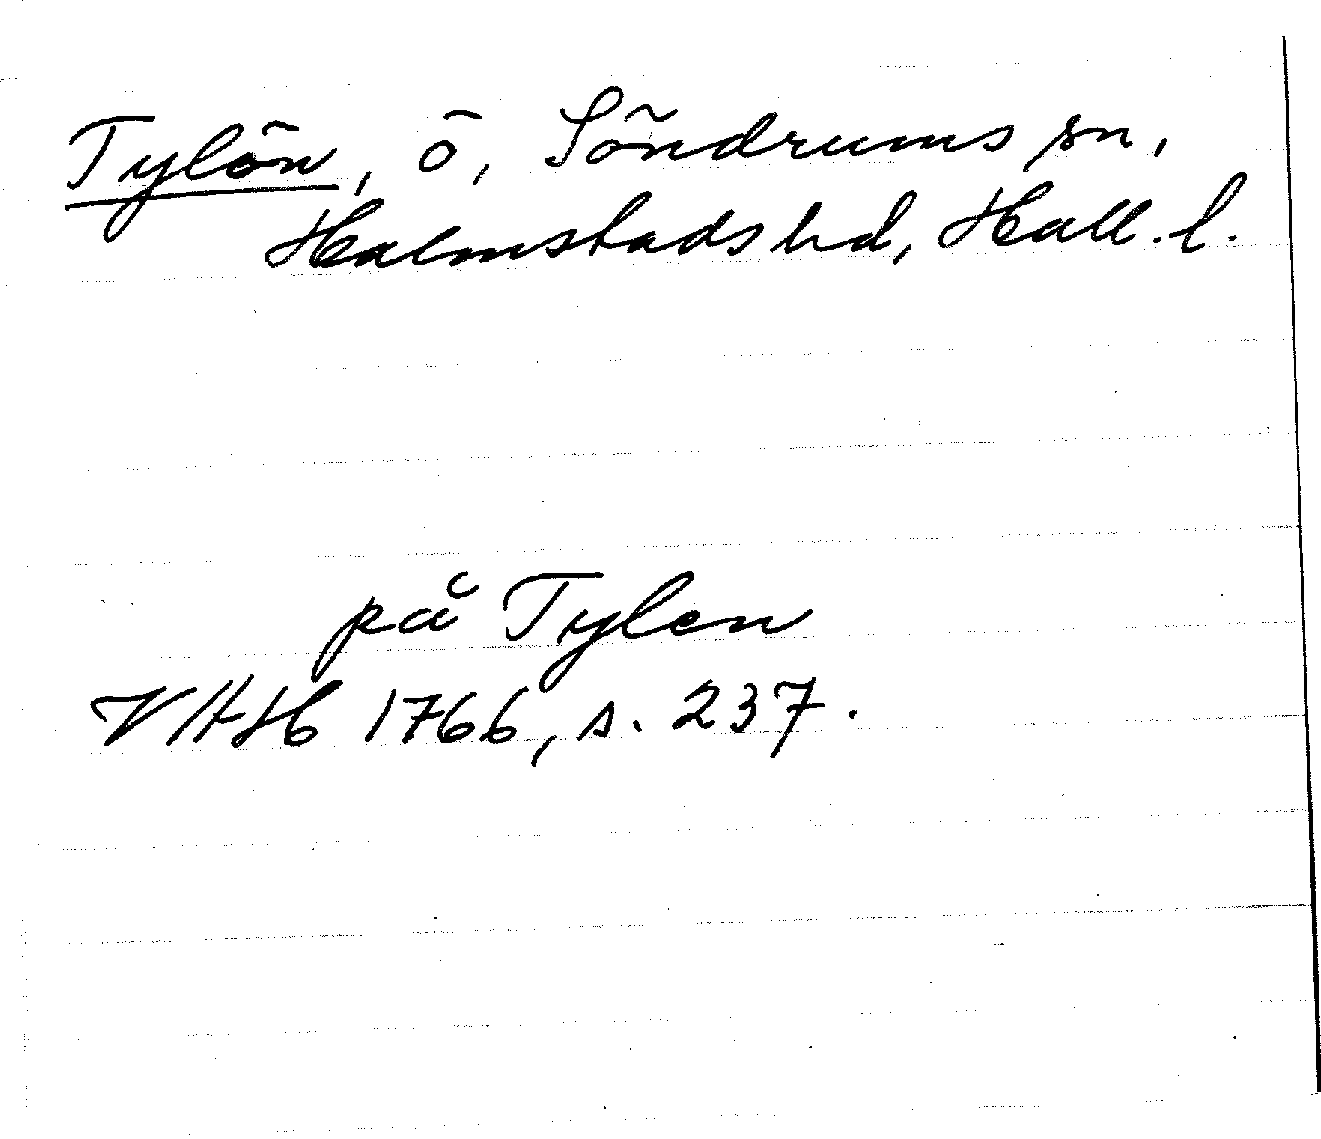 Tylön, ö, Söndrums sn,
Halmstads hd, Hall. l.
på Tylen
VHH 1766, s. 237.